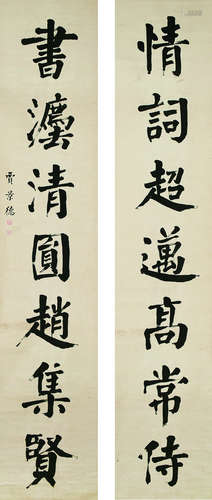 情詞超邁高常侍
書灋清圓趙集賢
賈景德